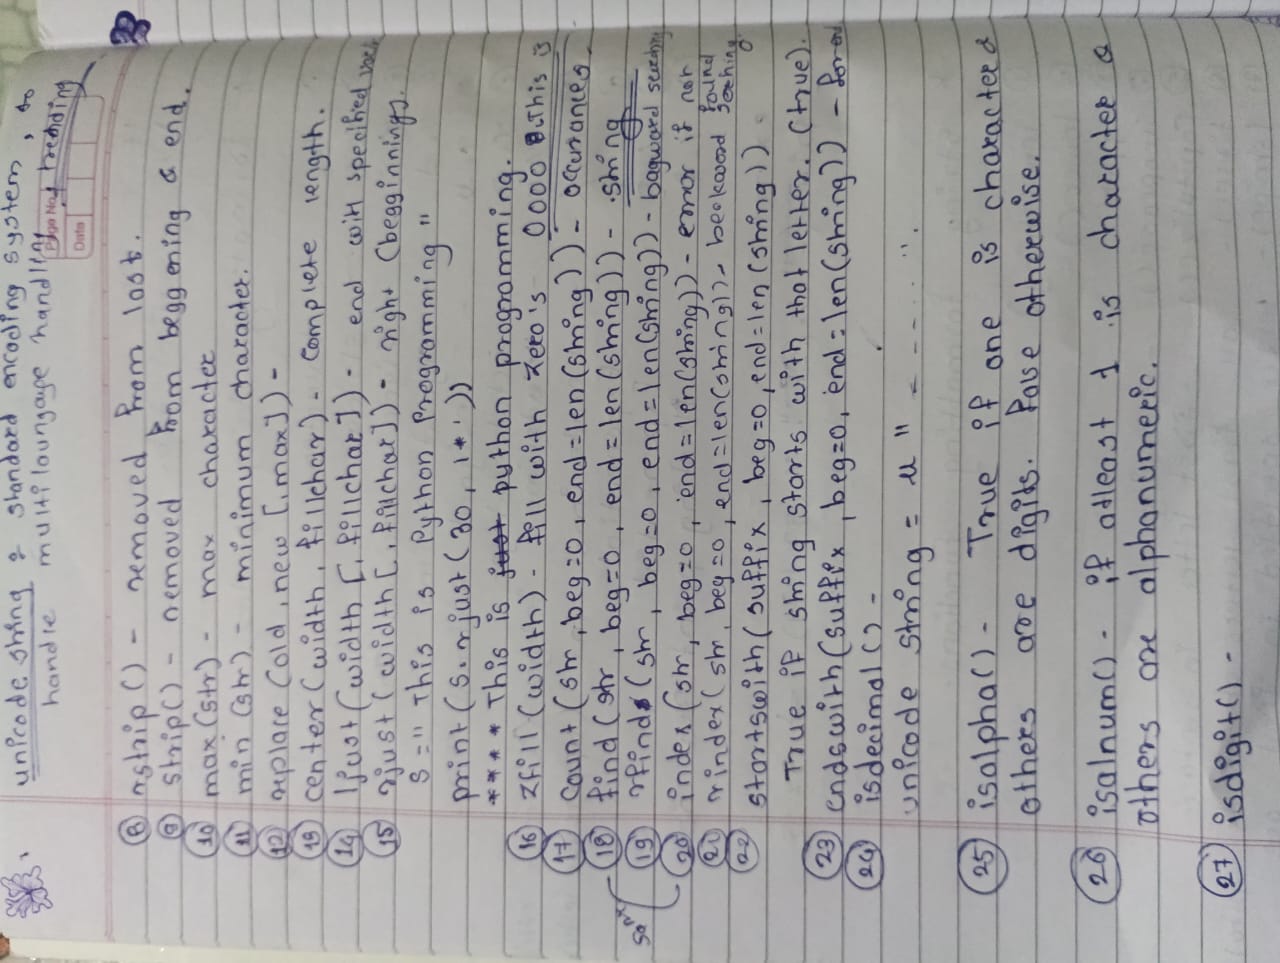 unicode string : standard encoding system, to
handle multiloungage handling & treading
Page No.
Date
⑧ rstrip() - removed from last.
⑨ strip() - removed from beggening & end.
⑩ max(str) - max character
⑪ min(str) - minimum character.
⑫ replace (old, new [,max]) -
⑬ center(width, fillchar) - complete length.
⑭ ljust(width [, fillchar]) - end with specified
⑮ rjust(width[, fillchar]) - right (begginnings.
S = " This is Python Programming "
print(S.rjust(30, '*'))
**** This is just python programming.
⑯ zfill(width) - fill with zero's 0000 This is
⑰ count(str, beg=0, end=len(string)) - occurances.
⑱ find(str, beg=0, end=len(string)) - string
same
⑲ rfind(str, beg=0, end=len(string)) - bagward serching
⑳ index(str, beg=0, end=len(string)) - error if not found
㉑ rindex(str, beg=0, end=len(string)) - beckword seehing.
㉒ startswith(suffix, beg=0, end=len(string))
True if string starts with that letter. (true).
㉓ endswith(suffix, beg=0, end=len(string)) - for end
㉔ isdecimal() -
unicode string = u " - - - .... ".
㉕ isalpha() - True if one is character &
others are digits. False otherwise.
㉖ isalnum() - if atleast 1 is character &
others are alphanumeric.
㉗ isdigit() -